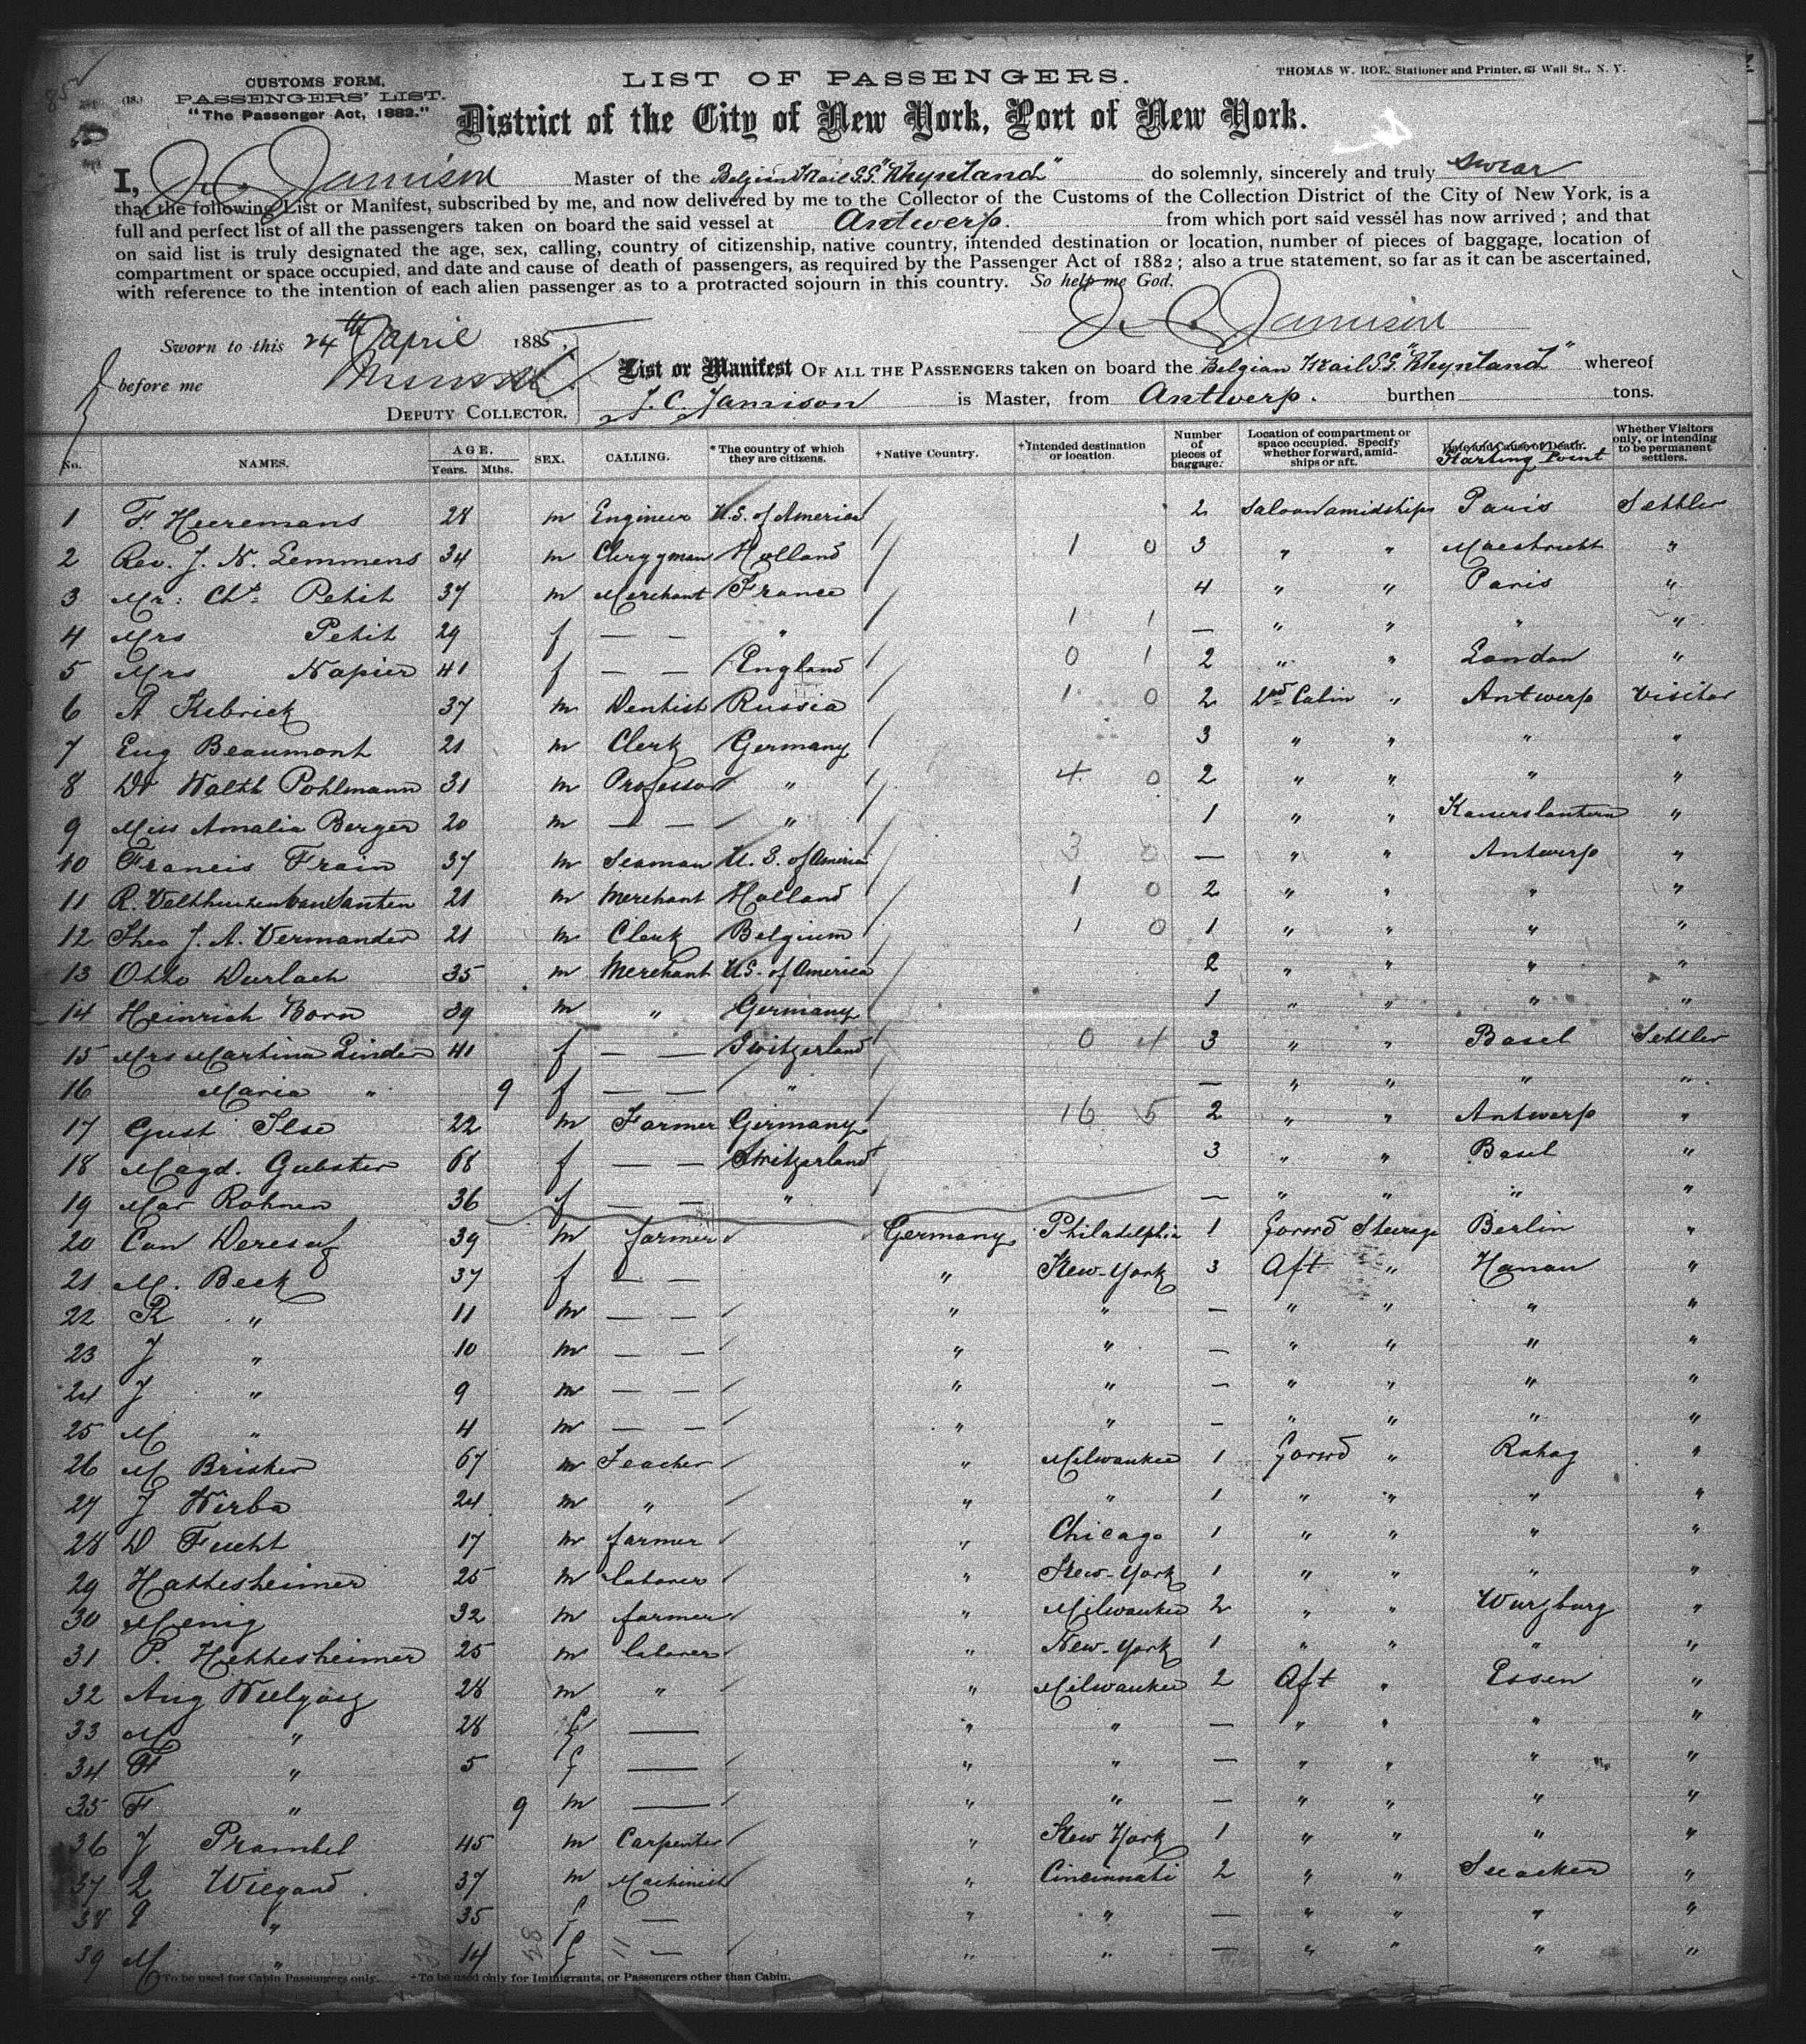 85
CUSTOMS FORM.
(18.) PASSENGERS' LIST.
"The Passenger Act, 1882."
LIST OF PASSENGERS.
THOMAS W. ROE, Stationer and Printer, 63 Wall St., N. Y.
District of the City of New York, Port of New York.
I, J. C. Jamison Master of the Belgian Mail S.S. "Rhynland" do solemnly, sincerely and truly swear
that the following List or Manifest, subscribed by me, and now delivered by me to the Collector of the Customs of the Collection District of the City of New York, is a
full and perfect list of all the passengers taken on board the said vessel at Antwerp. from which port said vessel has now arrived; and that
on said list is truly designated the age, sex, calling, country of citizenship, native country, intended destination or location, number of pieces of baggage, location of
compartment or space occupied, and date and cause of death of passengers, as required by the Passenger Act of 1882; also a true statement, so far as it can be ascertained,
with reference to the intention of each alien passenger as to a protracted sojourn in this country. So help me God.
J. C. Jamison
Sworn to this 24th April 1885,
before me
DEPUTY COLLECTOR.
List or Manifest OF ALL THE PASSENGERS taken on board the Belgian Mail S.S. "Rhynland" whereof
J. C. Jamison is Master, from Antwerp. burthen tons.
No. NAMES. AGE. Years. Mths. SEX. CALLING. *The country of which they are citizens. †Native Country. †Intended destination or location. Number of pieces of baggage. Location of compartment or space occupied. Specify whether forward, amidships or aft. Date and Cause of Death. Starting Point Whether Visitors only, or intending to be permanent settlers.
1 F Heeremans 28 m Engineer U.S. of America 2 Saloon amidships Paris Settler
2 Rev. J. N. Lemmens 34 m Clergyman Holland 1 0 3 " " Maestricht "
3 Mr: Chs Petit 37 m Merchant France 4 " " Paris "
4 Mrs Petit 29 f — — " 1 1 — " " " "
5 Mrs Napier 41 f — — England 0 1 2 " " London "
6 A Kebrick 37 m Dentist Russia 1 0 2 2nd Cabin " Antwerp Visitor
7 Eug Beaumont 21 m Clerk Germany 3 " " " "
8 Dr Walth Pohlmann 31 m Professor " 4 0 2 " " " "
9 Miss Amalia Berger 20 m — — " 1 " " Kaiserslautern "
10 Francis Frain 37 m Seaman U. S. of America 3 0 — " " Antwerp "
11 R. Velthuizen van Santen 21 m Merchant Holland 1 0 2 " " " "
12 Theo J. A. Vermander 21 m Clerk Belgium 1 0 1 " " " "
13 Otto Durlach 35 m Merchant U.S. of America 2 " " " "
14 Heinrich Born 39 m " Germany 1 " " " "
15 Mrs Martina Linder 41 f — — Switzerland 0 4 3 " " Basel Settler
16 Maria " 9 f — — " — " " " "
17 Gust Ilse 22 m Farmer Germany 16 5 2 " " Antwerp "
18 Magd. Gubster 68 f — — Switzerland 3 " " Basel "
19 Mar Rohner 36 f — — " — " " " "
20 Can 39 m farmer Germany Philadelphia 1 forwd Steerage Berlin "
21 M. Beck 37 f — — " New-York 3 Aft " Hanau "
22 R " 11 m — — " " — " " " "
23 J " 10 m — — " " — " " " "
24 J " 9 m — — " " — " " " "
25 M " 4 m — — " " — " " " "
26 M Brisker 67 m Teacher " Milwaukee 1 forwd " "
27 J Wirba 24 m " " " 1 " " " "
28 D Fucht 17 m farmer " Chicago 1 " " " "
29 Hattesheimer 25 m laborer " New-York 1 " " " "
30 Menig 32 m farmer " Milwaukee 2 " " Wurzburg "
31 P. Hettesheimer 25 m laborer " New-York 1 " " " "
32 Aug 28 m " " Milwaukee 2 Aft " Essen "
33 M " 28 f — " " — " " " "
34 F " 5 f — " " — " " " "
35 F " 9 m — " " — " " " "
36 J Pramtel 45 m Carpenter " New York 1 " " " "
37 Wiegand 37 m Machinist " Cincinnati 2 " " "
38 " 35 f — " " — " " " "
39 M " 14 f — " " — " " " "
*To be used for Cabin Passengers only. †To be used only for Immigrants, or Passengers other than Cabin.